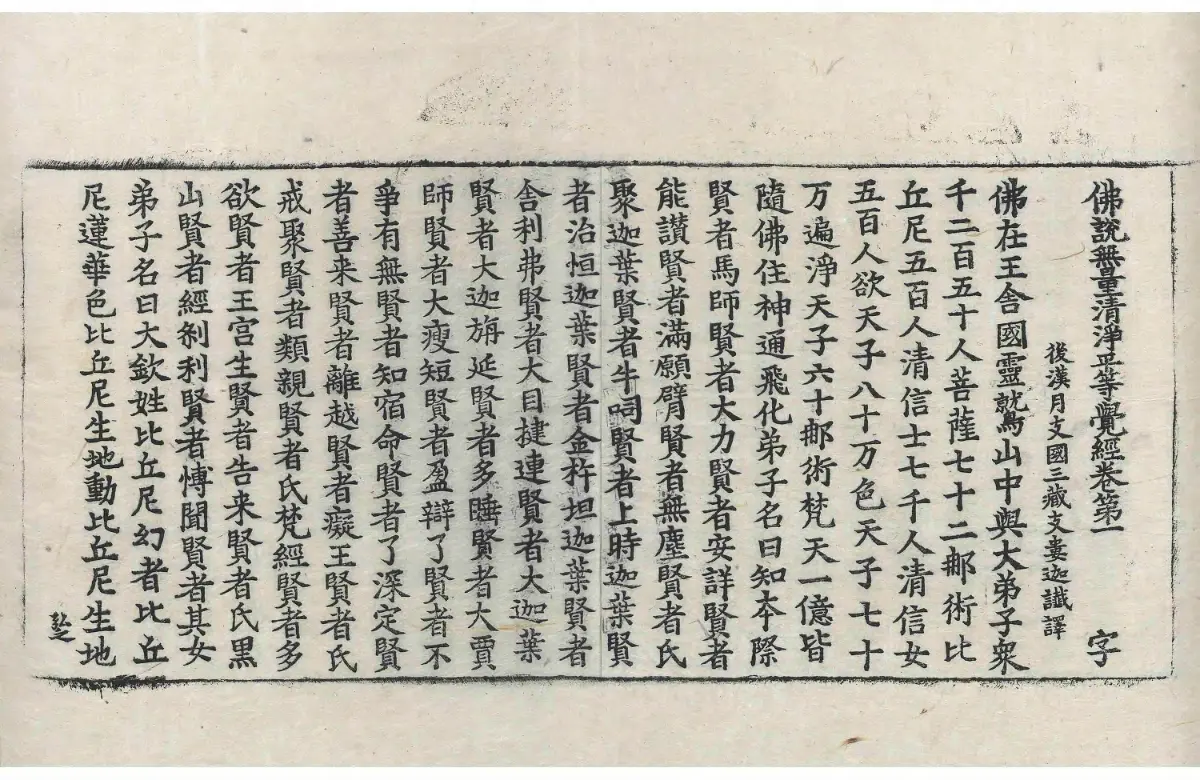 佛說無量清淨平等覺經卷第一 字
後漢月支國三藏支婁迦讖譯
佛在王舍國靈鷲山中與大弟子衆
千二百五十人菩薩七十二那術比
丘尼五百人清信士七千人清信女
五百人欲天子八十万色天子七十
万遍淨天子六十那術梵天一億皆
隨佛住神通飛化弟子名曰知本際
賢者馬師賢者大力賢者安詳賢者
能讃賢者滿願臂賢者無塵賢者氏
聚迦葉賢者牛呞賢者上時迦葉賢
者治恒迦葉賢者金杵坦迦葉賢者
舍利弗賢者大目揵連賢者大迦葉
賢者大迦旃延賢者多睡賢者大賈
師賢者大瘦短賢者盈辯了賢者不
爭有無賢者知宿命賢者了深定賢
者善来賢者離越賢者癡王賢者氏
戒聚賢者類親賢者氏梵經賢者多
欲賢者王宮生賢者告来賢者氏黒
山賢者經刹利賢者博聞賢者其女
弟子名曰大欽姓比丘尼幻者比丘
尼蓮華色比丘尼生地動比丘尼生地